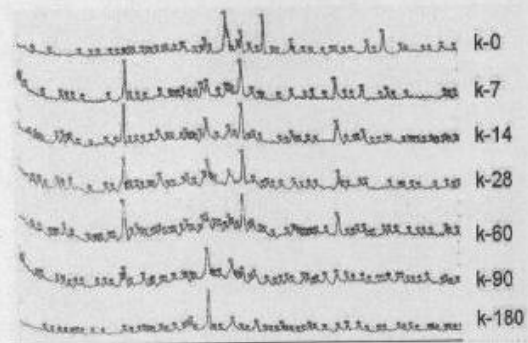 k-0
k-7
k-14
k-28
k-60
k-90
k-180